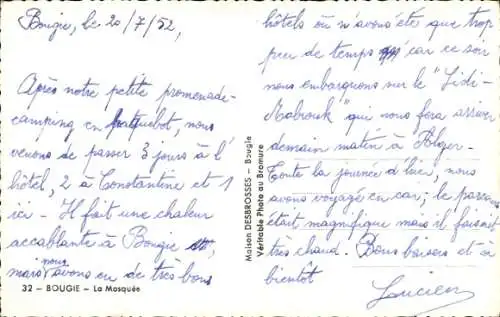 Bougie, le 20/7/52,
Après notre petite promenade-
camping en paquebot, nous
venons de passer 3 jours à l'
hôtel, 2 à Constantine et 1
ici - Il fait une chaleur
accablante à Bougie
mais nous avons eu de très bons
32 - BOUGIE - La Mosquée
Maison DESBROSSES - Bougie
Véritable Photo au Bromure
hôtels où n'avons été que trop
peu de temps car ce soir
nous embarquons sur le "Sidi-
Mabrouk" qui nous fera arriver
demain matin à Alger-
Toute la journée d'hier, nous
avons voyagé en car; le parcours
était magnifique mais il faisait
très chaud. Bons baisers et à
bientôt
Lucien